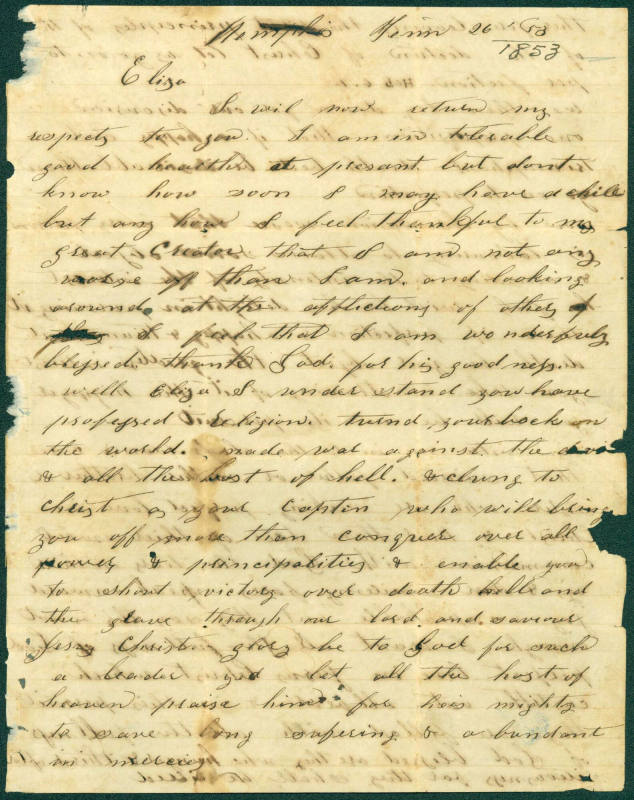 Memphis Tenn 26th /53
1853
Eliza
I wil now return my
respects to you. I am in tolerable
good health at presant but dont
know how soon I may have a chill
but any how I feel thankful to my
great Creator that I am not any
worse of than I am. and looking
around at the afflictions of others
I feel that I am wonderfuly
blessed. thank God for his goodness.
well Eliza I under stand you have
professed religion. turnd your back on
the world. made war against the devil
& all the host of hell. & clung to
Christ as your Capten who will bring
you off more than conquer over all
powers & principalities & enable you
to shout victory over death hell and
the grave through our lord and saviour
Jesus Christ glory be to God for such
a leader yes let all the host of
heaven praise him for he is mighty
to save long sufering & a bundant
in mercy